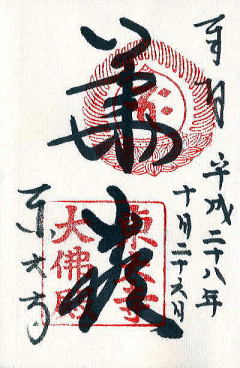 奉拝
平成二十八年
十月二十六日
華嚴
東大寺
大佛殿
東大寺